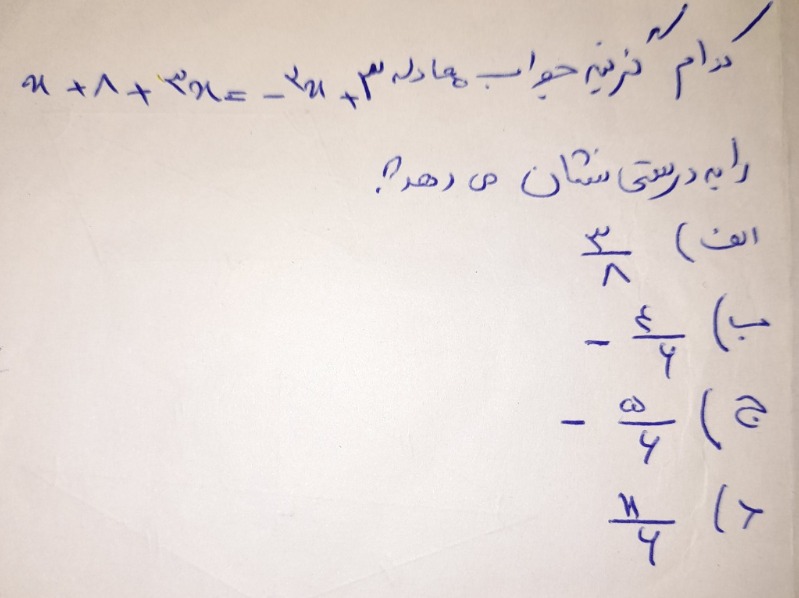 کدام گزینه جواب معادله x + ۸ + ۳x = -۲x + ۳
را به درستی نشان می دهد؟
الف) ۳/۸
ب) -۴/۶
ج) -۵/۶
د) x/۶